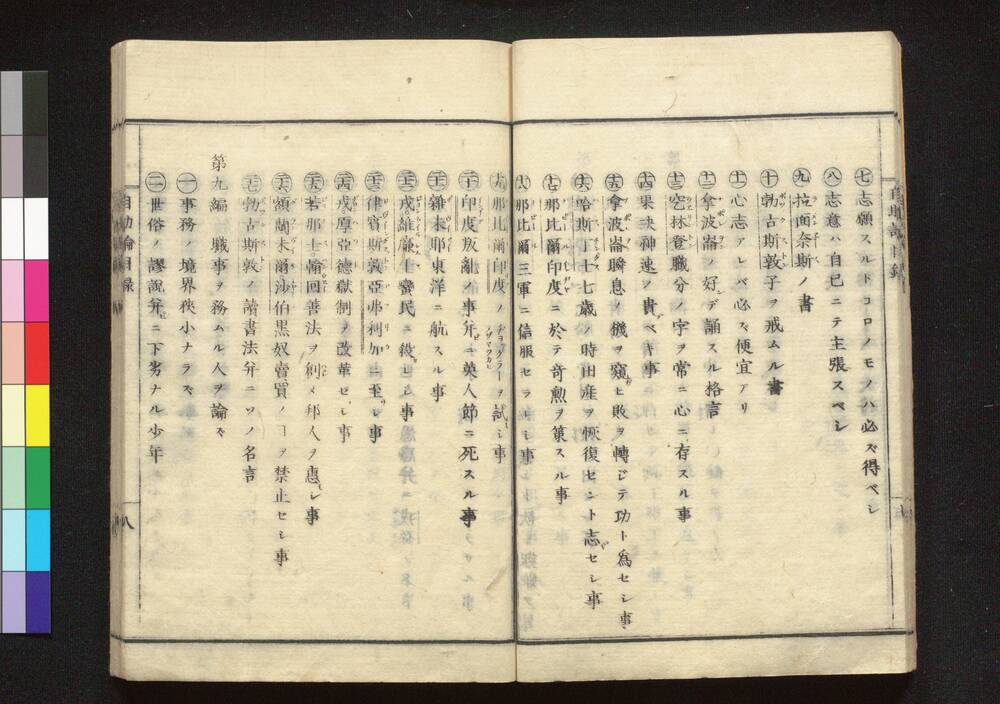 ㊆志願スルトコロノモノハ必ズ得ベシ
㊇志意ハ自己ニテ主張スベシ
㊈拉面奈斯ノ書
㊉勃古斯敦子ヲ戒ムル書
⑪心志アレバ必ズ便宜アリ
⑫拿波崙ノ好デ誦スル格言
⑬空林登職分ノ字ヲ常ニ心ニ存スル事
⑭果決神速ノ貴ベキ事
⑮拿波崙瞬息ノ機ヲ窺ヒ敗ヲ轉ジテ功ト為セシ事
⑯哈斯丁士七歳ノ時田産ヲ恢復セント志セシ事
⑰那比爾印度ニ於テ奇勲ヲ策スル事
⑱那比爾三軍ニ信服セラレシ事
⑲那比爾印度ノヂョググラーヲ試シ事
⑳印度叛亂ノ事并ニ英人節ニ死スル事
雜未耶東洋ニ航スル事
戎維廉士蠻民ニ殺レシ事
律賓斯敦亞弗利加ニ至レシ事
戎厚亞德獄制ヲ改革セシ事
若那士翰回善法ヲ創メ邦人ヲ惠シ事
額蘭末爾沙伯黒奴賣買ノコヲ禁止セシ事
勃古斯敦ノ讀書法并ニツノ名言
第九編 職事ヲ務ムル人ヲ論ズ
㊀事務ノ境界狹小ナラズ
㊁世俗ノ謬説并ニ下劣ナル少年
自助論目録
八